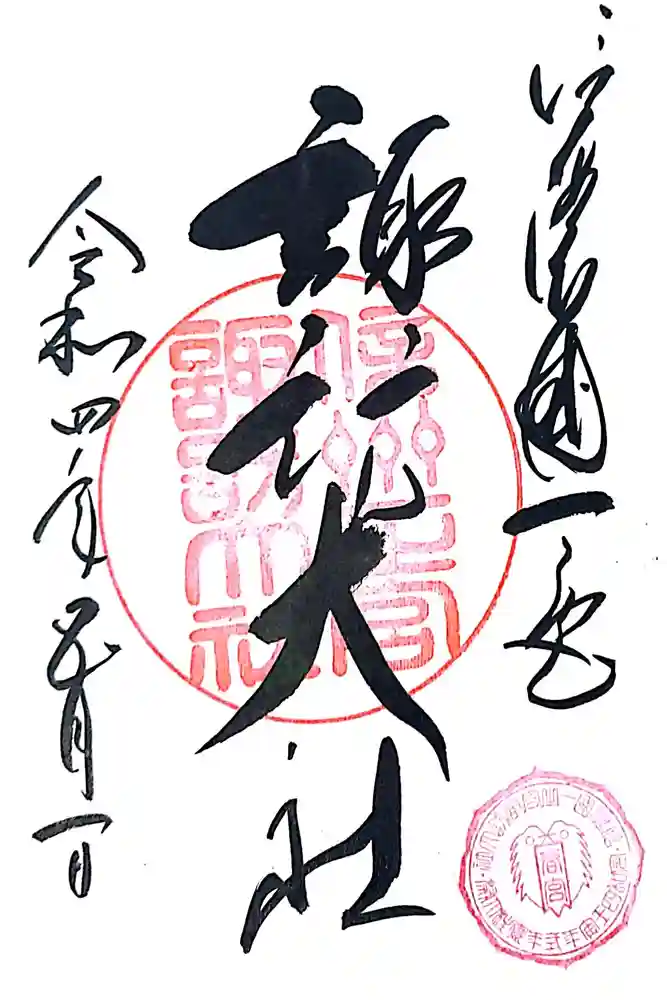 信濃國一之宮
諏訪大社
令和四年五月一日
諏訪大社